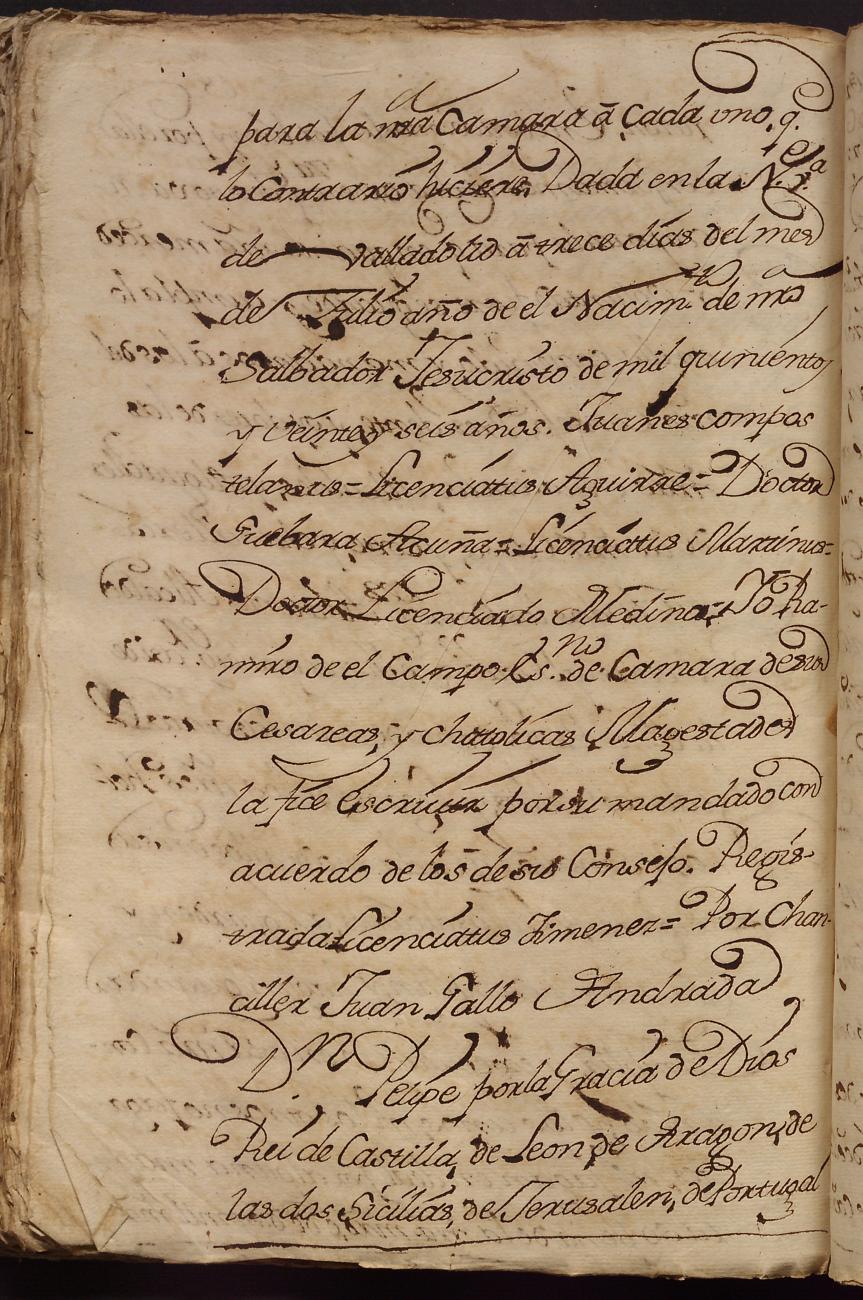 para la nra Camara â cada uno, q.e
lo Contrario hiciere, Dada en la N. V.a
de Valladolid â trece dias del mes
de Julio año de el Nacim.to de nro
Salbador Jesucristo de mil quinientos
y veinte y seis años. Juanes compos
telanus = Licenciatus Aguirre = Doctor
Guebara Acuña = Licenciatus Martinus =
Doctor Licenciado Medina = Yo Ra-
miro de el Campo Es.no de Camara de sus
Cesareas, y chatolicas Magestades
la fice escrivir por su mandado con
acuerdo de los de su Consejo. Regis-
trada Licenciatus Jimenez = Por Chan-
ciller Juan Gallo Andrada
D.n Pelipe por la Gracia de Dios
Rei de Castilla, de Leon, de Aragon, de
las dos Sicilias, de Jerusalen, de Portugal